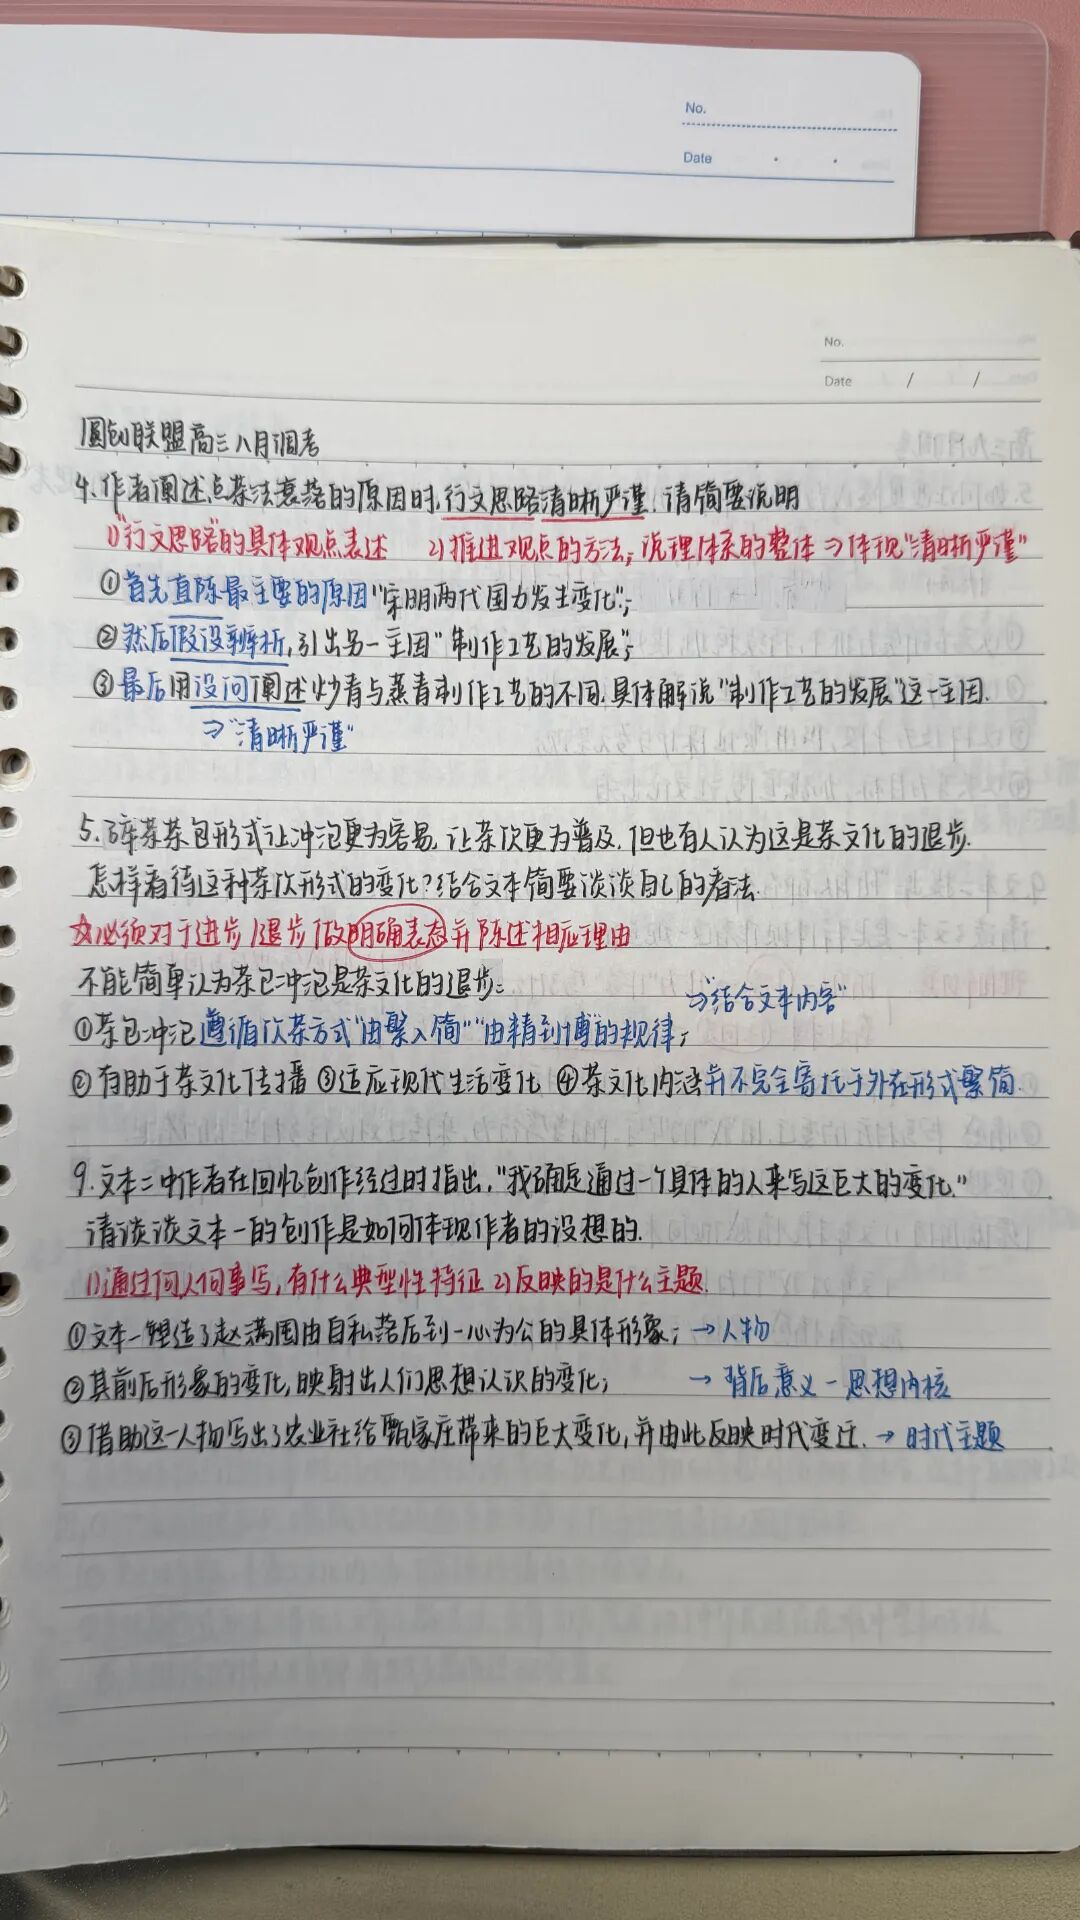 No.
Date
No.
Date / /
圆创联盟高三八月调考
4.作者阐述点茶法衰落的原因时,行文思路清晰严谨.请简要说明
1)"行文思路"的具体观点表述 2)推进观点的方法;说理体系的整体⇒体现"清晰严谨"
①首先直陈最主要的原因"宋明两代国力发生变化";
②然后假设辨析,引出另一主因"制作工艺的发展";
③最后用设问阐述炒青与蒸青制作工艺的不同.具体解说"制作工艺的发展"这一主因.
⇒"清晰严谨"
5.碎茶茶包形式让冲泡更为容易,让茶饮更为普及.但也有人认为这是茶文化的退步.
怎样看待这种茶饮形式的变化?结合文本简要谈谈自己的看法.
☆必须对于进步/退步做明确表态并陈述相应理由
不能简单认为茶包冲泡是茶文化的退步:
⇒"结合文本内容"
①茶包冲泡遵循饮茶方式"由繁入简""由精到博"的规律;
②有助于茶文化传播 ③适应现代生活变化 ④茶文化内涵并不完全寄托于外在形式繁简.
9.文本二中作者在回忆创作经过时指出,"我确定通过一个具体的人来写这巨大的变化."
请谈谈文本一的创作是如何体现作者的设想的.
1)通过何人何事写,有什么典型性特征 2)反映的是什么主题.
①文本一塑造了赵满囤由自私落后到一心为公的具体形象; → 人物
②其前后形象的变化,映射出人们思想认识的变化; → 背后意义-思想内核
③借助这一人物写出了农业社给甄家庄带来的巨大变化,并由此反映时代变迁. → 时代主题